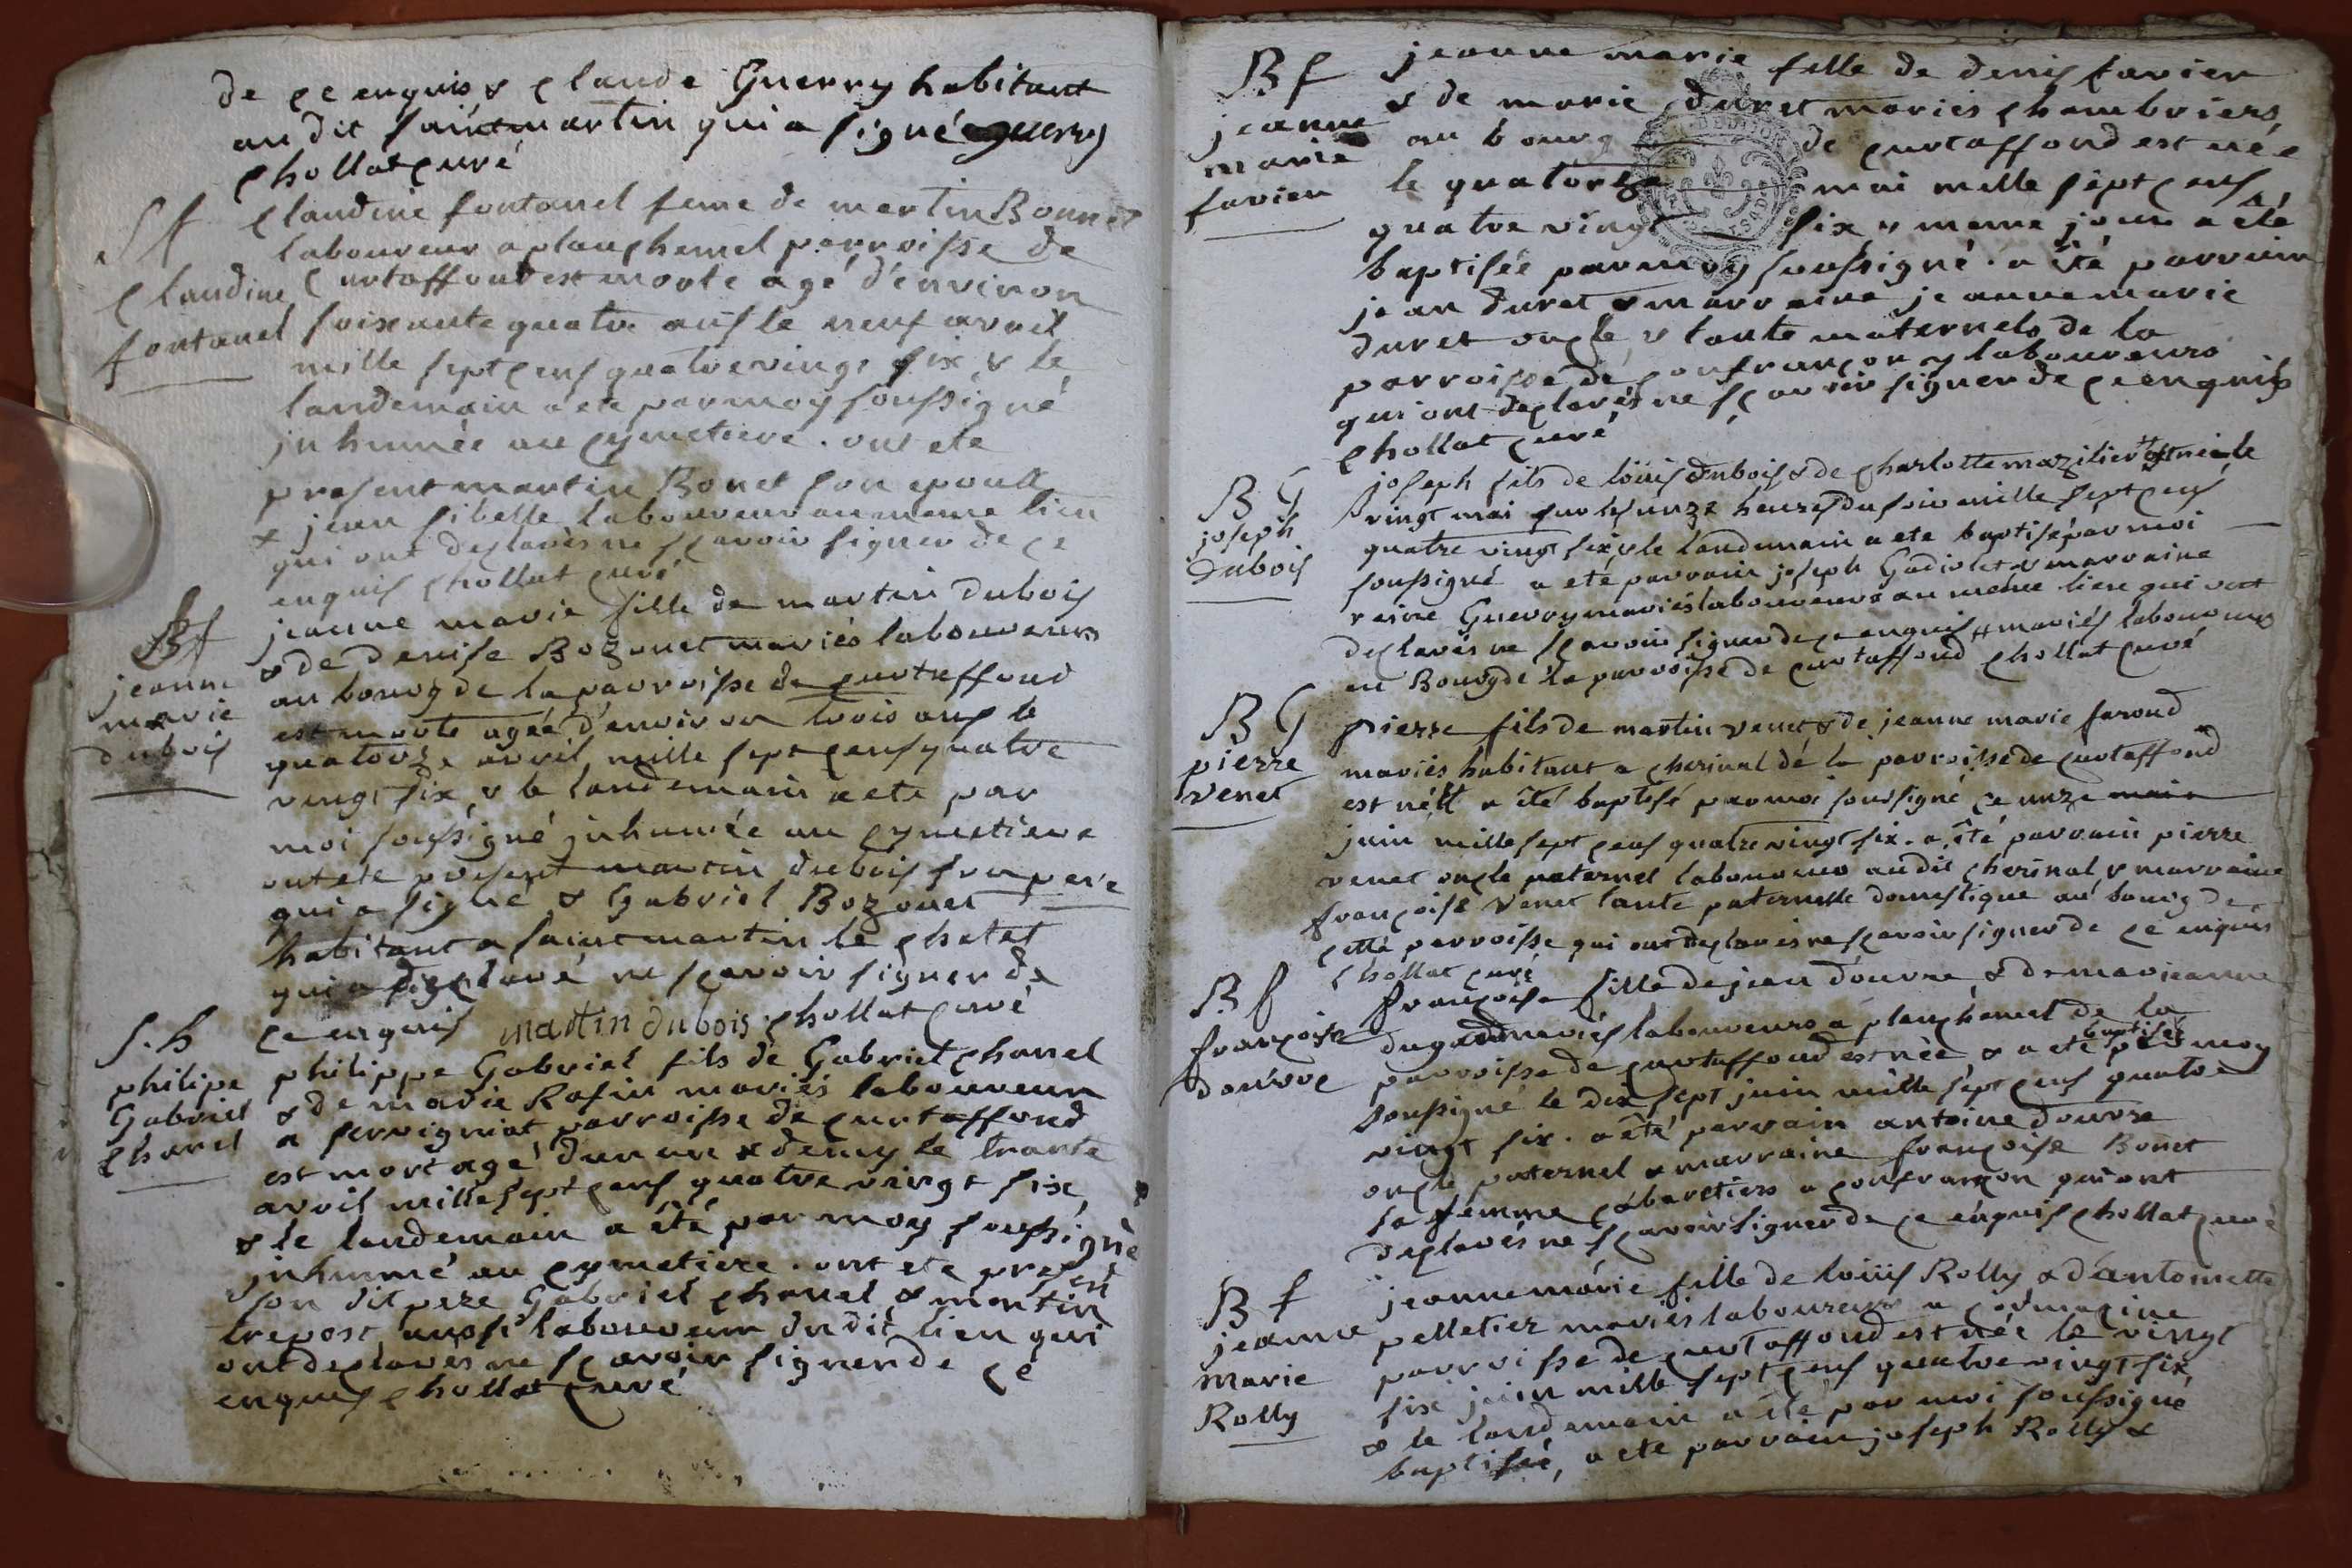 de ce enquis & claude Guerry habitant
au dit saintmartin qui a signé guerry
chollat curé
Sf
claudine
fontanel
claudine fontanel feme de martin Bonnet
laboureur a planchemel parroisse de
Curtaffond est morte agé d'environ
soixante quatre ans le neuf avril
mille sept cens quatre vingt six & le
landemain a ete par moy soussigné
inhumée au cymetiere. ont ete
present martin Bonet son epoux
& jean sibelle laboureur au meme lieu
qui ont declarés ne scavoir signer de ce
enquis chollat curé
Sf
jeanne
marie
dubois
jeanne marie fille de martin dubois
& de denise Bozonet mariés laboureurs
au bourg de la parroisse de curtaffond
est morte agée d'environ trois ans le
quatorze avril mille sept cens quatre
vingt six & le landemain a ete par
moi soussigné inhumée au cymetiere
ont ete present martin dubois son pere
qui a signé & Gabriel Bozonet
habitant a saint martin le chatel
qui a declaré ne scavoir signer de
ce enquis martin dubois chollat curé
S.h
philipe
Gabriel
chanel
philippe Gabriel fils de Gabriel chanel
& de marie Rafin mariés laboureurs
a servigniat parroisse de curtaffond
est mort agé d'un an & demy le trante
avril mille sept cens quatre vingt six
& le landemain a été par moy soussigné
inhumé au cymetiere. ont ete present
son dit pere Gabriel chanel & martin
trepost aussi laboureur du dit lieu qui
ont declarés ne scavoir signer de ce
enquis chollat curé
Bf
jeanne
marie
favier
jeanne marie fille de denis favier
& de marie duret mariés chambriers
au bourg de curtaffond est née
le quatorze mai mille sept cens
quatre vingt six & meme jour a été
baptisée par moy soussigné. a été parrain
jean duret & marraine jeanne marie
duret oncle & tante maternels de la
parroisse de confrançon laboureurs
qui ont declarés ne scavoir signer de ce enquis
chollat curé
BG
joseph
Dubois
joseph fils de loüis dubois & de charlotte mazilier # est né le
vingt mai sur les unze heures du soir mille sept cens
quatre vingt six & le landemain a ete baptisé par moi
soussigné a eté parrain joseph Gadiolet & marraine
reine Guerry mariés laboureurs au même lieu qui ont
declarés ne scavoir signer de ce enquis # mariés laboureurs
au Bourg de la parroisse de curtaffond chollat curé
BG
pierre
Venet
pierre fils de martin venet & de jeanne marie faroud
mariés habitant a cherinal de la parroisse de curtaffond
est né & a été baptisé par moi soussigné ce unze
juin mille sept cens quatre vingt six. a été parrain pierre
venet oncle paternel laboureur au dit cherinal & marraine
françoise Venet tante paternelle domestique au bourg de
cette parroisse qui ont declarés ne scavoir signer de ce enquis
chollat curé
Bf
françoise
douvre
françoise fille de jean douvre & de marieanne
dugad mariés laboureurs a planchemel de la
parroisse de curtaffond est née & a ete baptisée par moy
soussigné le dix sept juin mille sept cens quatre
vingt six. a été parrain antoine douvre
oncle paternel & marraine françoise Bonet
sa femme cabaretiers a confrançon qui ont
declarés ne scavoir signer de ce enquis chollat curé
Bf
jeanne
marie
Rolly
jeanne marie fille de loüis Rolly & d'antoinette
pelletier mariés laboureurs a
parroisse de curtaffond est née le vingt
six juin mille sept cens quatre vingt six
& le landemain a été par moi soussigné
baptisée, a ete parrain joseph Rolly &